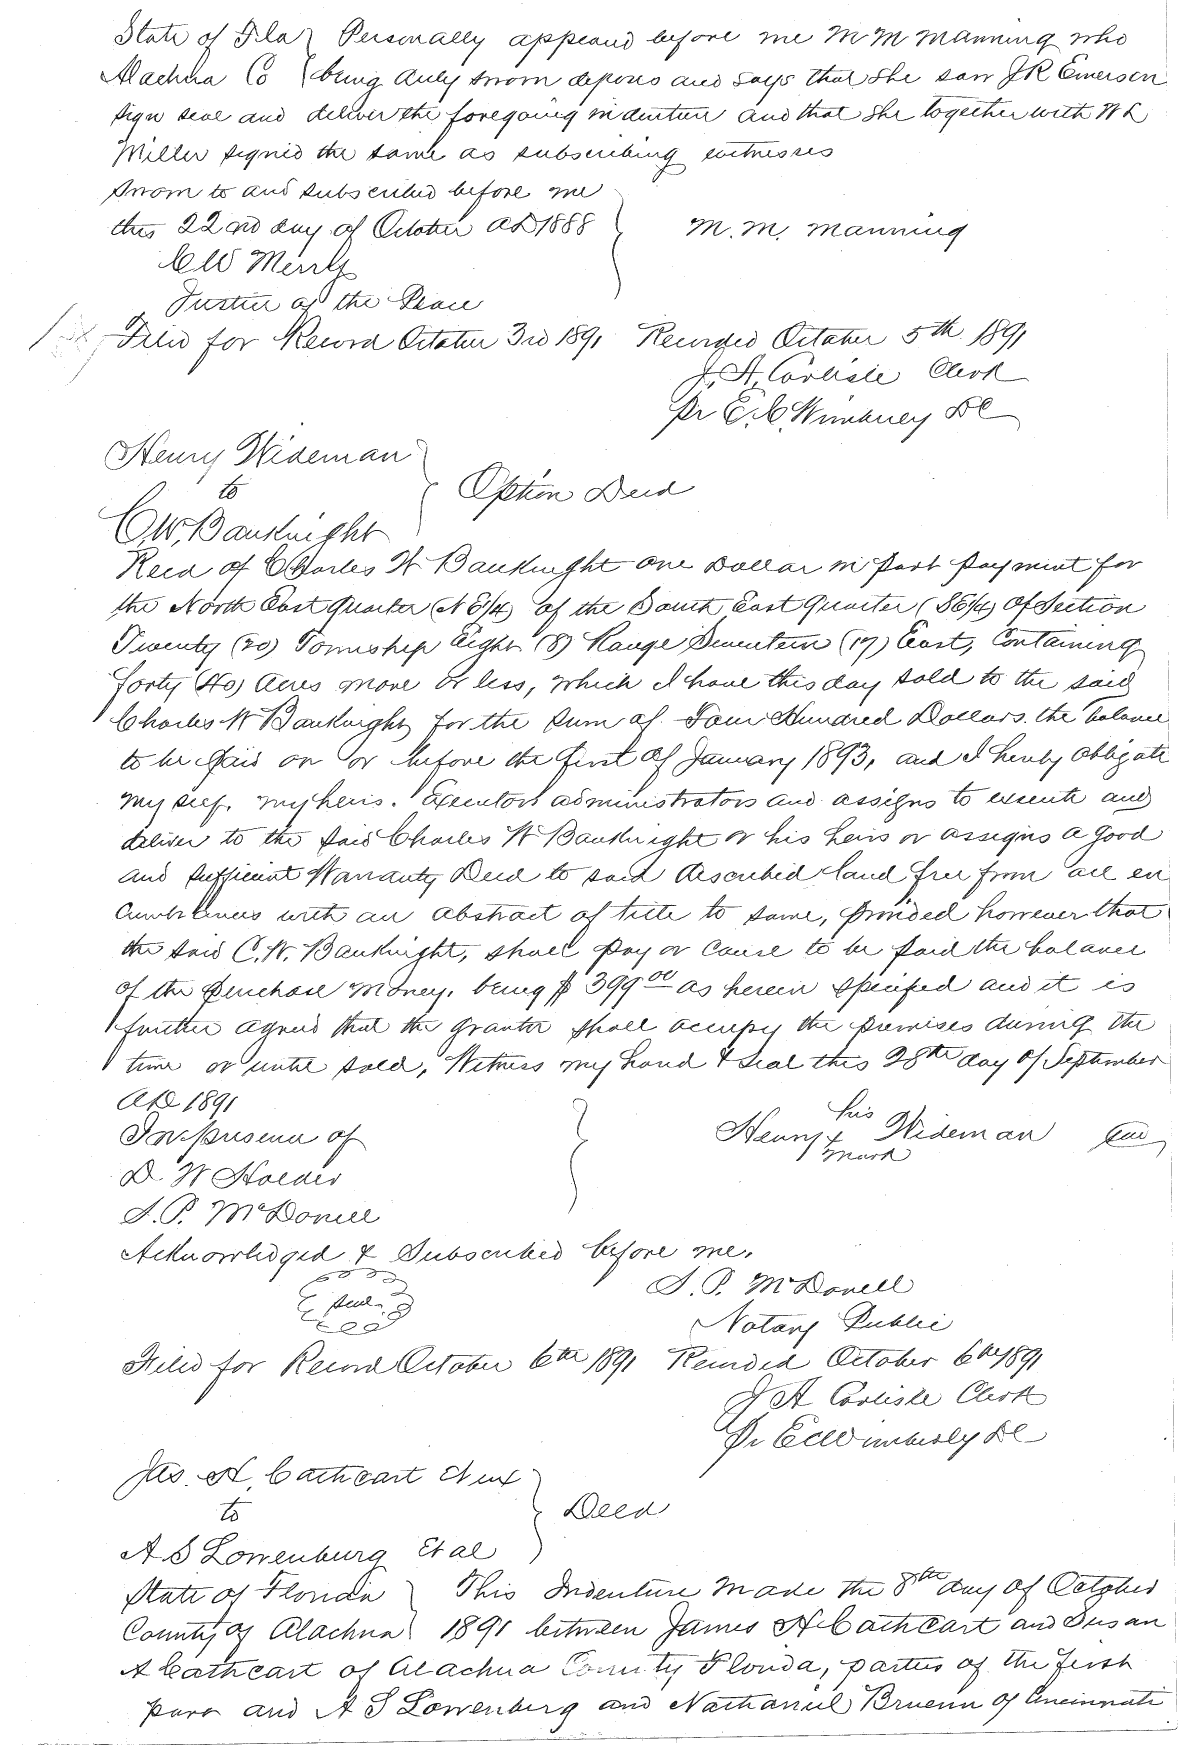 State of Fla } Personally appeared before me M M Manning who
Alachua Co } being duly sworn deposes and says that she saw J R Emerson
sign seal and deliver the foregoing indenture and that she together with W L
Miller signed the same as subscribing witnesses
Sworn to and subscribed before me
this 22nd day of October AD 1888 } M. M. Manning
C W Merry
Justice of the Peace
Filed for Record October 3rd 1891 Recorded October 5th 1891
J. A. Carlisle Clerk
Pr E. C. Wimberley DC
Henry Wideman
to } Option Deed
C. W. Bauknight
Recd of Charles W Bauknight one Dollar in part payment for
the North East Quarter (NE/4) of the South East Quarter (SE/4) of Section
Twenty (20) Township Eight (8) Range Seventeen (17) East, Containing
forty (40) Acres more or less, which I have this day sold to the said
Charles W Bauknight for the sum of Four Hundred Dollars. the balance
to be paid on or before the first of January 1893, and I hereby obligate
my self, my heirs. Executors administrators and assigns to execute and
deliver to the said Charles W Bauknight or his heirs or assigns a good
and sufficient Warranty Deed to said described land free from all en
cumbrances with an abstract of title to same, provided however that
the said C. W. Bauknight, shall pay or cause to be paid the balance
of the purchase money, being $399 00 as herein specified and it is
further agreed that the grantor shall occupy the premises during the
time or until sold, Witness my hand & seal this 28th day of September
AD 1891
In presence of } his
Henry x Wideman Seal
mark
D. W Holder
S. P. McDonell
Acknowledged & Subscribed before me.
S. P. McDonell
Seal
Notary Public
Filed for Record October 6th 1891 Recorded October 6th 1891
J A Carlisle Clerk
Pr E C Wimberly DC
Jas. A. Cathcart et ux
to } Deed
A S Lowenburg et al
State of Florida } This Indenture Made the 8th day of October
County of Alachua } 1891 between James A Cathcart and Susan
A Cathcart of Alachua County Florida, parties of the first
part and A S Lowenberg and Nathaniel Bruenn of Cincinnati